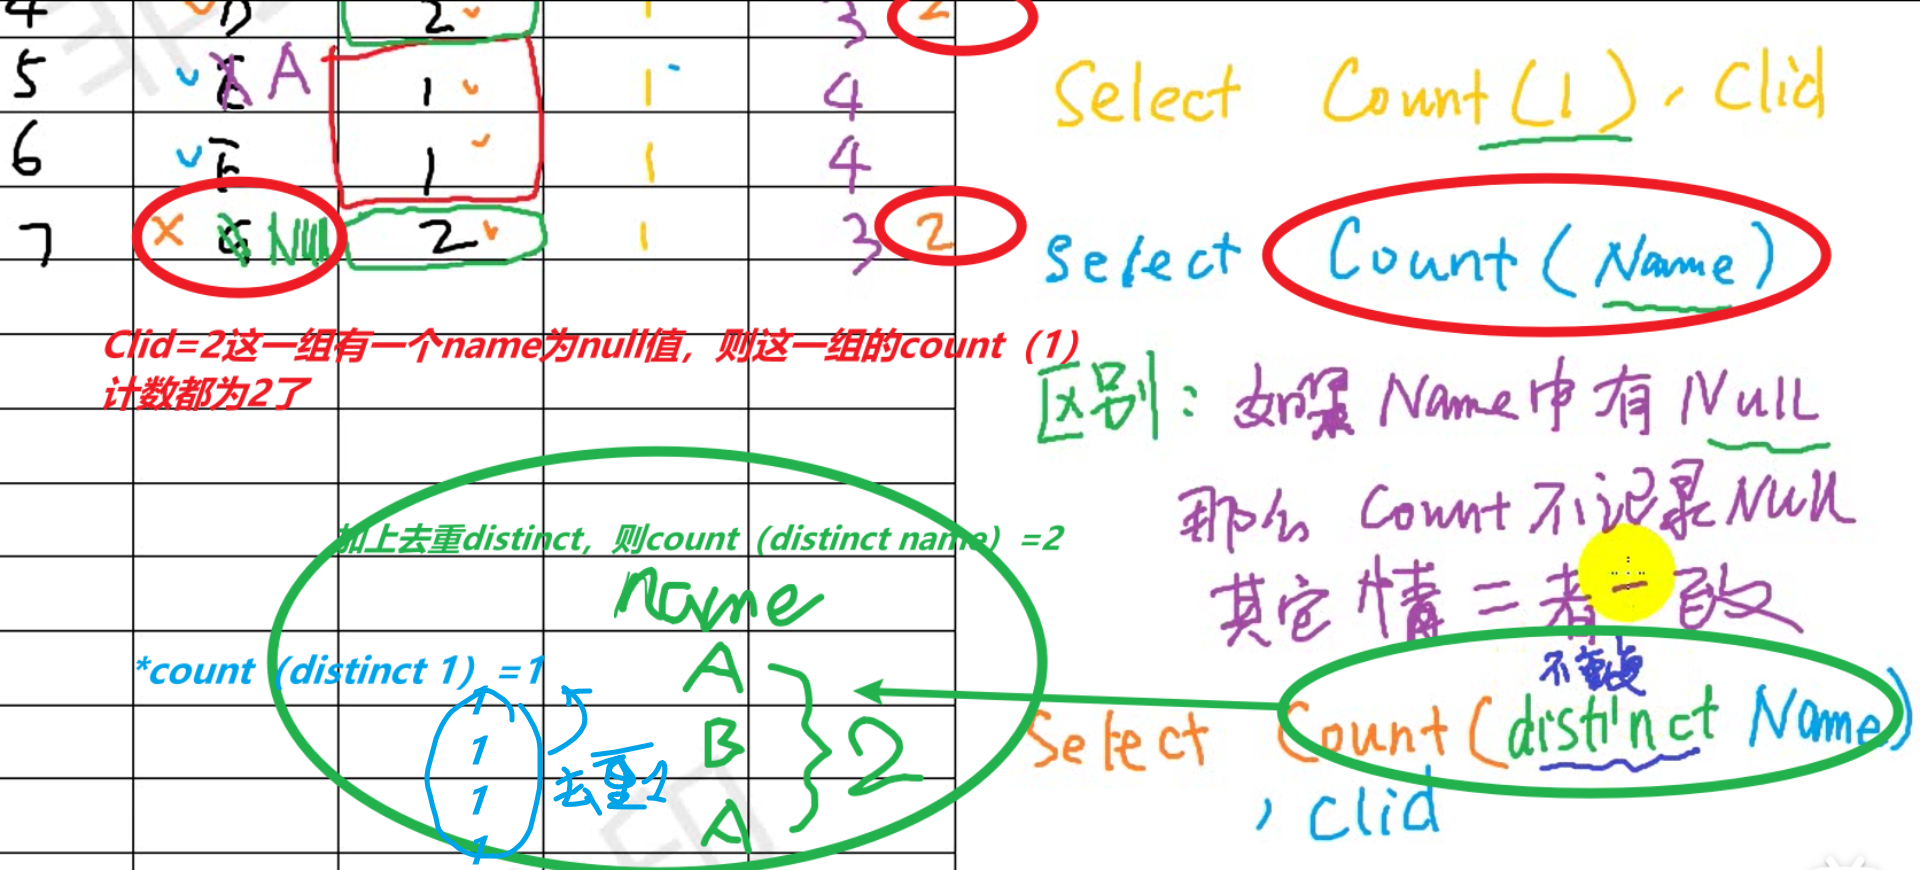 4 D 2 1 3 2
5 A 1 1 4
6 E 1 1 4
7 Null 2 1 3 2
Clid=2这一组有一个name为null值，则这一组的count（1）
计数都为2了
加上去重distinct，则count（distinct name）=2
name
A
B
A
2
*count（distinct 1）=1
1
1
1
1
去重1
Select Count(1), Clid
Select Count(Name)
区别：如果Name中有Null
那么Count不记录Null
其它情二者一致
不重复
Select Count(distinct Name)
, clid